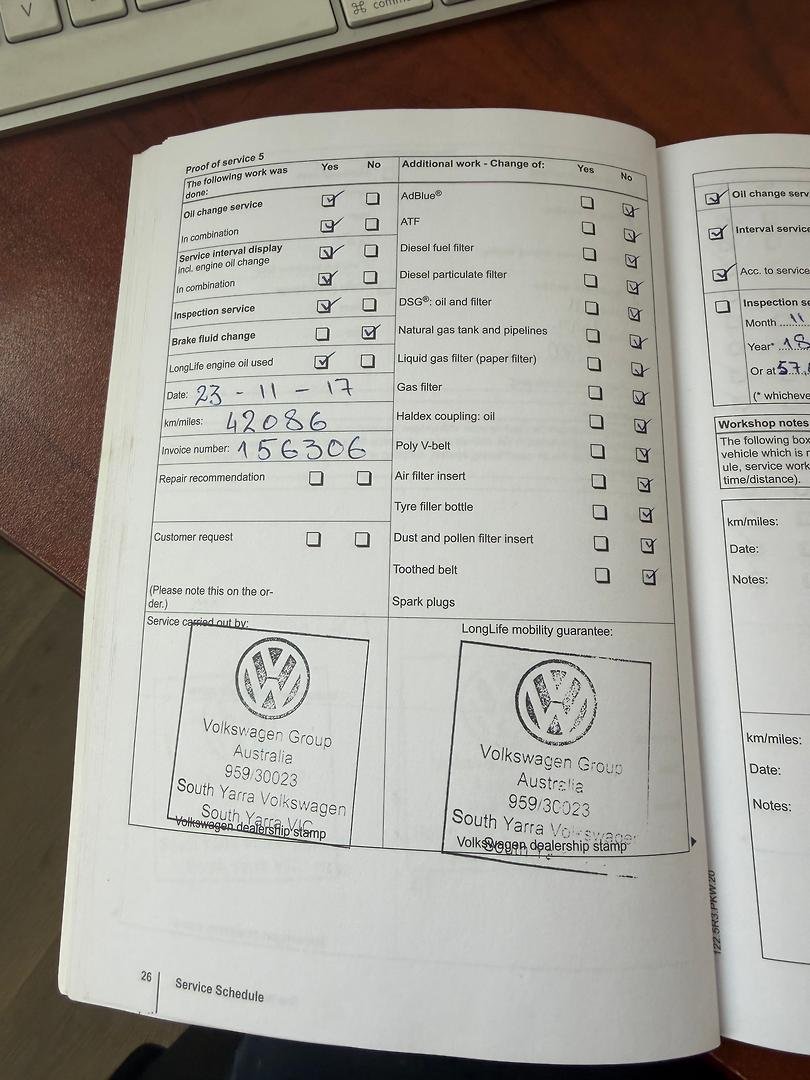 comm
Proof of service 5
The following work was done:
Yes
No
Oil change service
In combination
Service interval display
incl. engine oil change
In combination
Inspection service
Brake fluid change
LongLife engine oil used
Date: 23 - 11 - 17
km/miles: 42086
Invoice number: 156306
Repair recommendation
Customer request
(Please note this on the or-
der.)
Additional work - Change of:
Yes
No
AdBlue®
ATF
Diesel fuel filter
Diesel particulate filter
DSG®: oil and filter
Natural gas tank and pipelines
Liquid gas filter (paper filter)
Gas filter
Haldex coupling: oil
Poly V-belt
Air filter insert
Tyre filler bottle
Dust and pollen filter insert
Toothed belt
Spark plugs
Service carried out by:
Volkswagen Group
Australia
959/30023
South Yarra Volkswagen
South Yarra VIC
Volkswagen dealership stamp
LongLife mobility guarantee:
Volkswagen Group
Australia
959/30023
South Yarra Volkswagen
South
Volkswagen dealership stamp
26
Service Schedule
122.5R3.PKW.20
Oil change serv
Interval service
Acc. to service
Inspection se
Month 11
Year* 18
Or at 57.
(* whicheve
Workshop notes
The following box
vehicle which is r
ule, service work
time/distance).
km/miles:
Date:
Notes:
km/miles:
Date:
Notes: